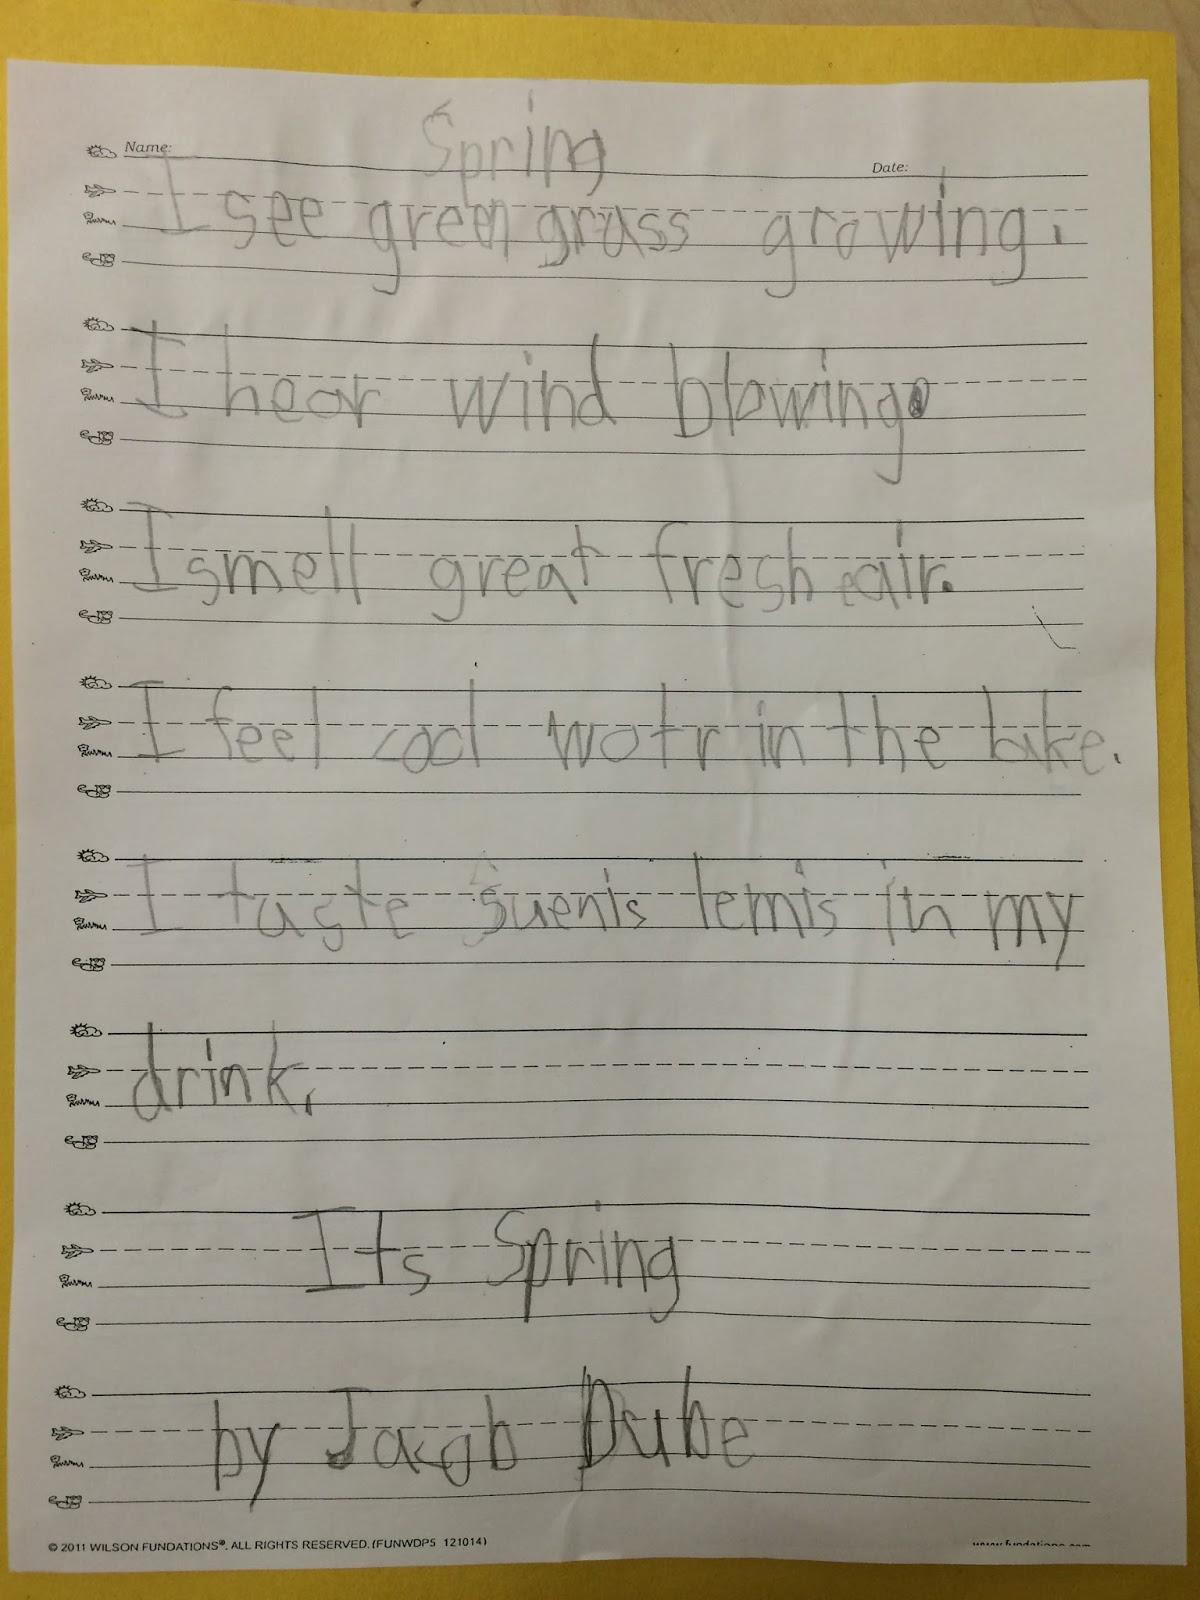 Spring
Name: Date:
I see green grass growing.
I hear wind blowing.
I smell great fresh air.
I feel cool wotr in the lake.
I taste suenis lemis in my
drink.
Its Spring
by Jacob Dube
© 2011 WILSON FUNDATIONS®. ALL RIGHTS RESERVED. (FUNWDP5 121014)
www.fundations.com